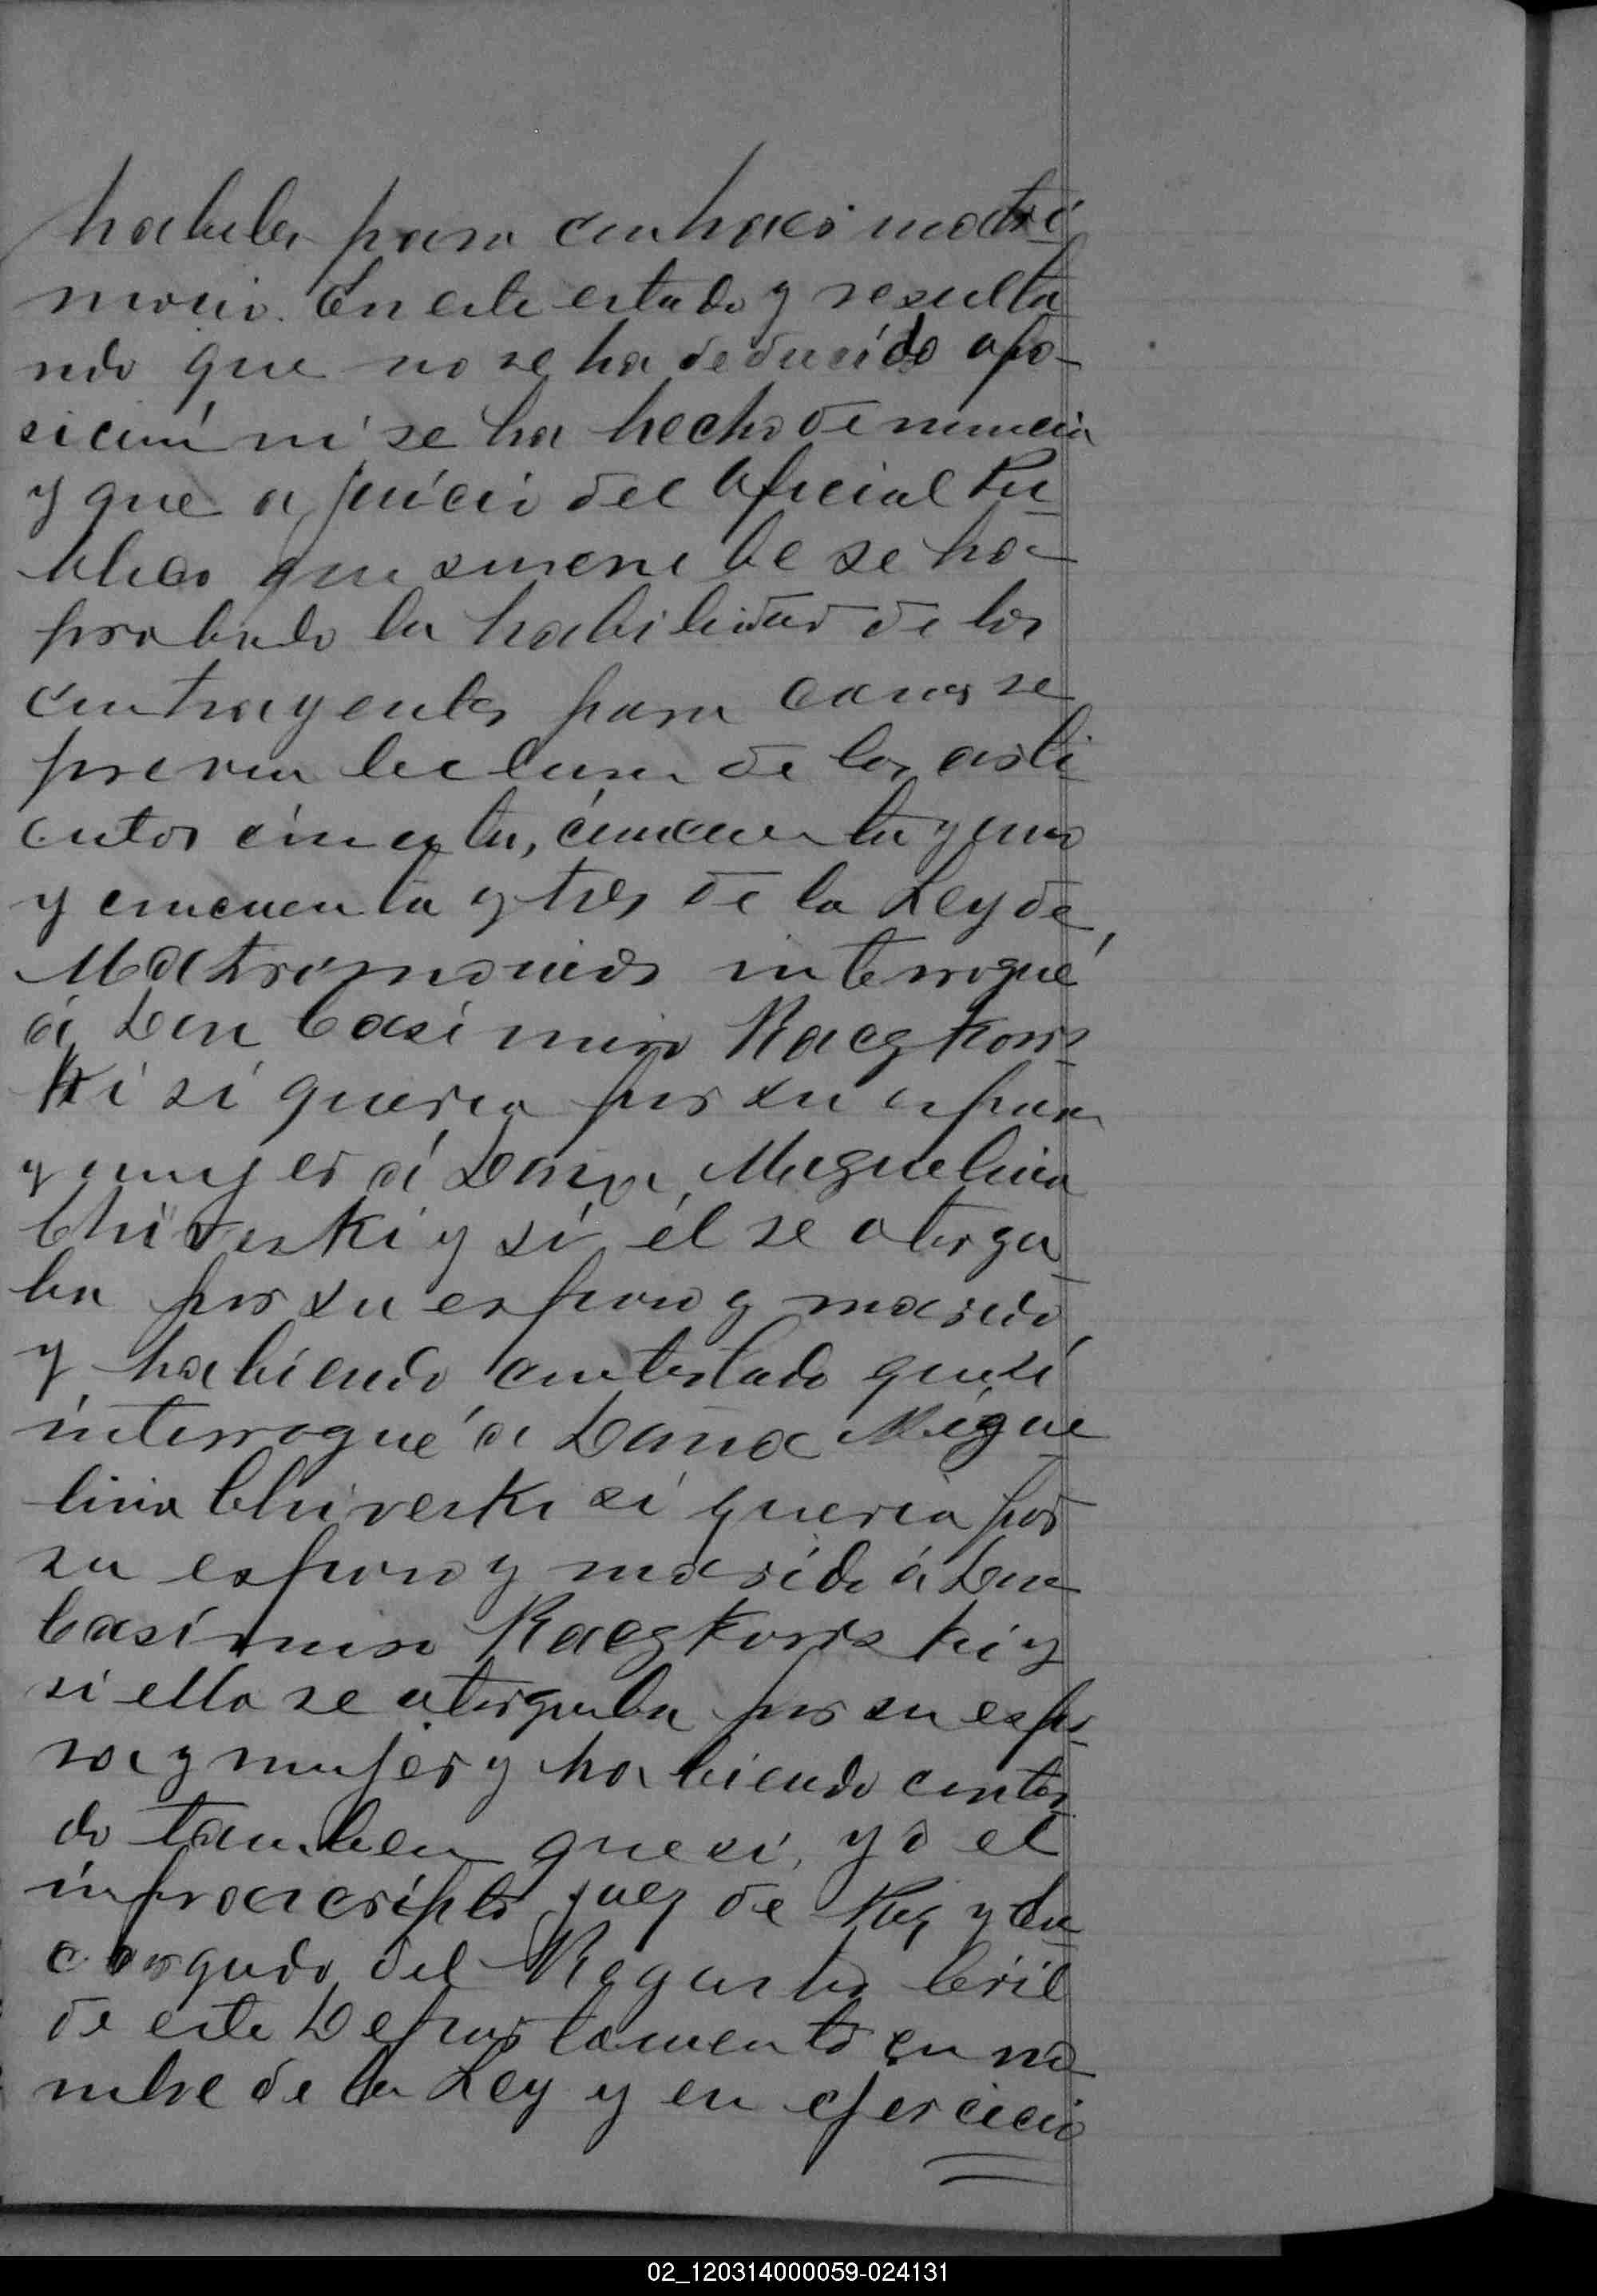 habiles para contraer matri
monio. En este estado y resulta
ndo que no se ha deducido opo-
sicion ni se ha hecho denuncia
y que a juicio del oficial Pu-
blico que suscribe se ha
probado la habilidad de los
contrayentes para casarse
previa lectura de los arti
culos cincuenta, cincuenta y uno
y cincuenta y tres de la Ley de
Matrimonios interrogué
á Don Casimiro Raczkows-
ki si queria por su esposa
y mujer á Doña Miguelina
Chiverki y si él se otorga-
ba por su esposo y marido,
y habiendo contestado que si
interrogué a Doña Migue
lina Chiverki si queria por
su esposo y marido á Don
Casimiro Raczkowski y
si ella se otorgaba por su espo-
sa y mujer y habiendo contes-
do tambien que si, yo el
infrascripto Juez de Paz y En
cargado del Registro Civil
de este Departamento en no-
mbre de la Ley y en ejercicio
02_120314000059-024131